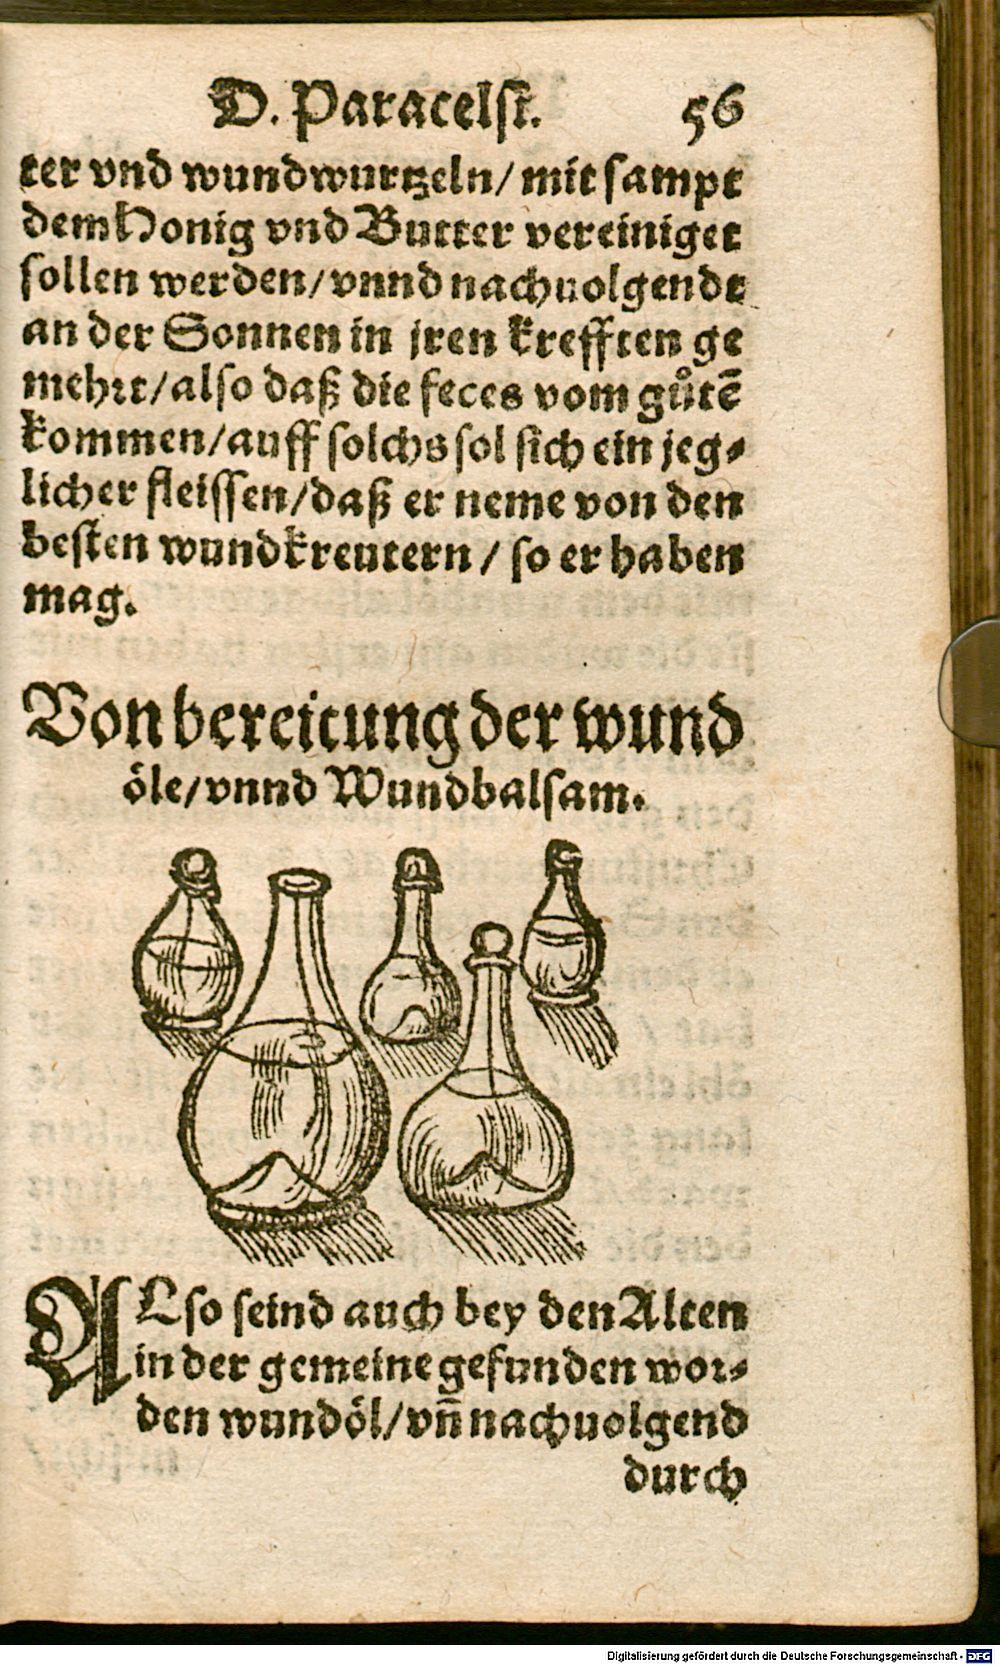 D. Paracelsi. 56
ter vnd wundwurtzeln/ mit sampt
dem Honig vnd Butter vereiniget
sollen werden/ vnnd nachuolgendt
an der Sonnen in jren krefften ge
mehrt/ also daß die feces vom gůtē
kommen/ auff solchs sol sich ein jeg-
licher fleissen/ daß er neme von den
besten wundkreutern / so er haben
mag.
Von bereitung der wund
öle/ vnnd Wundbalsam.
ALso seind auch bey den Alten
in der gemeine gefunden wor-
den wundöl/ vñ nachuolgend
durch
Digitalisierung gefördert durch die Deutsche Forschungsgemeinschaft - DFG